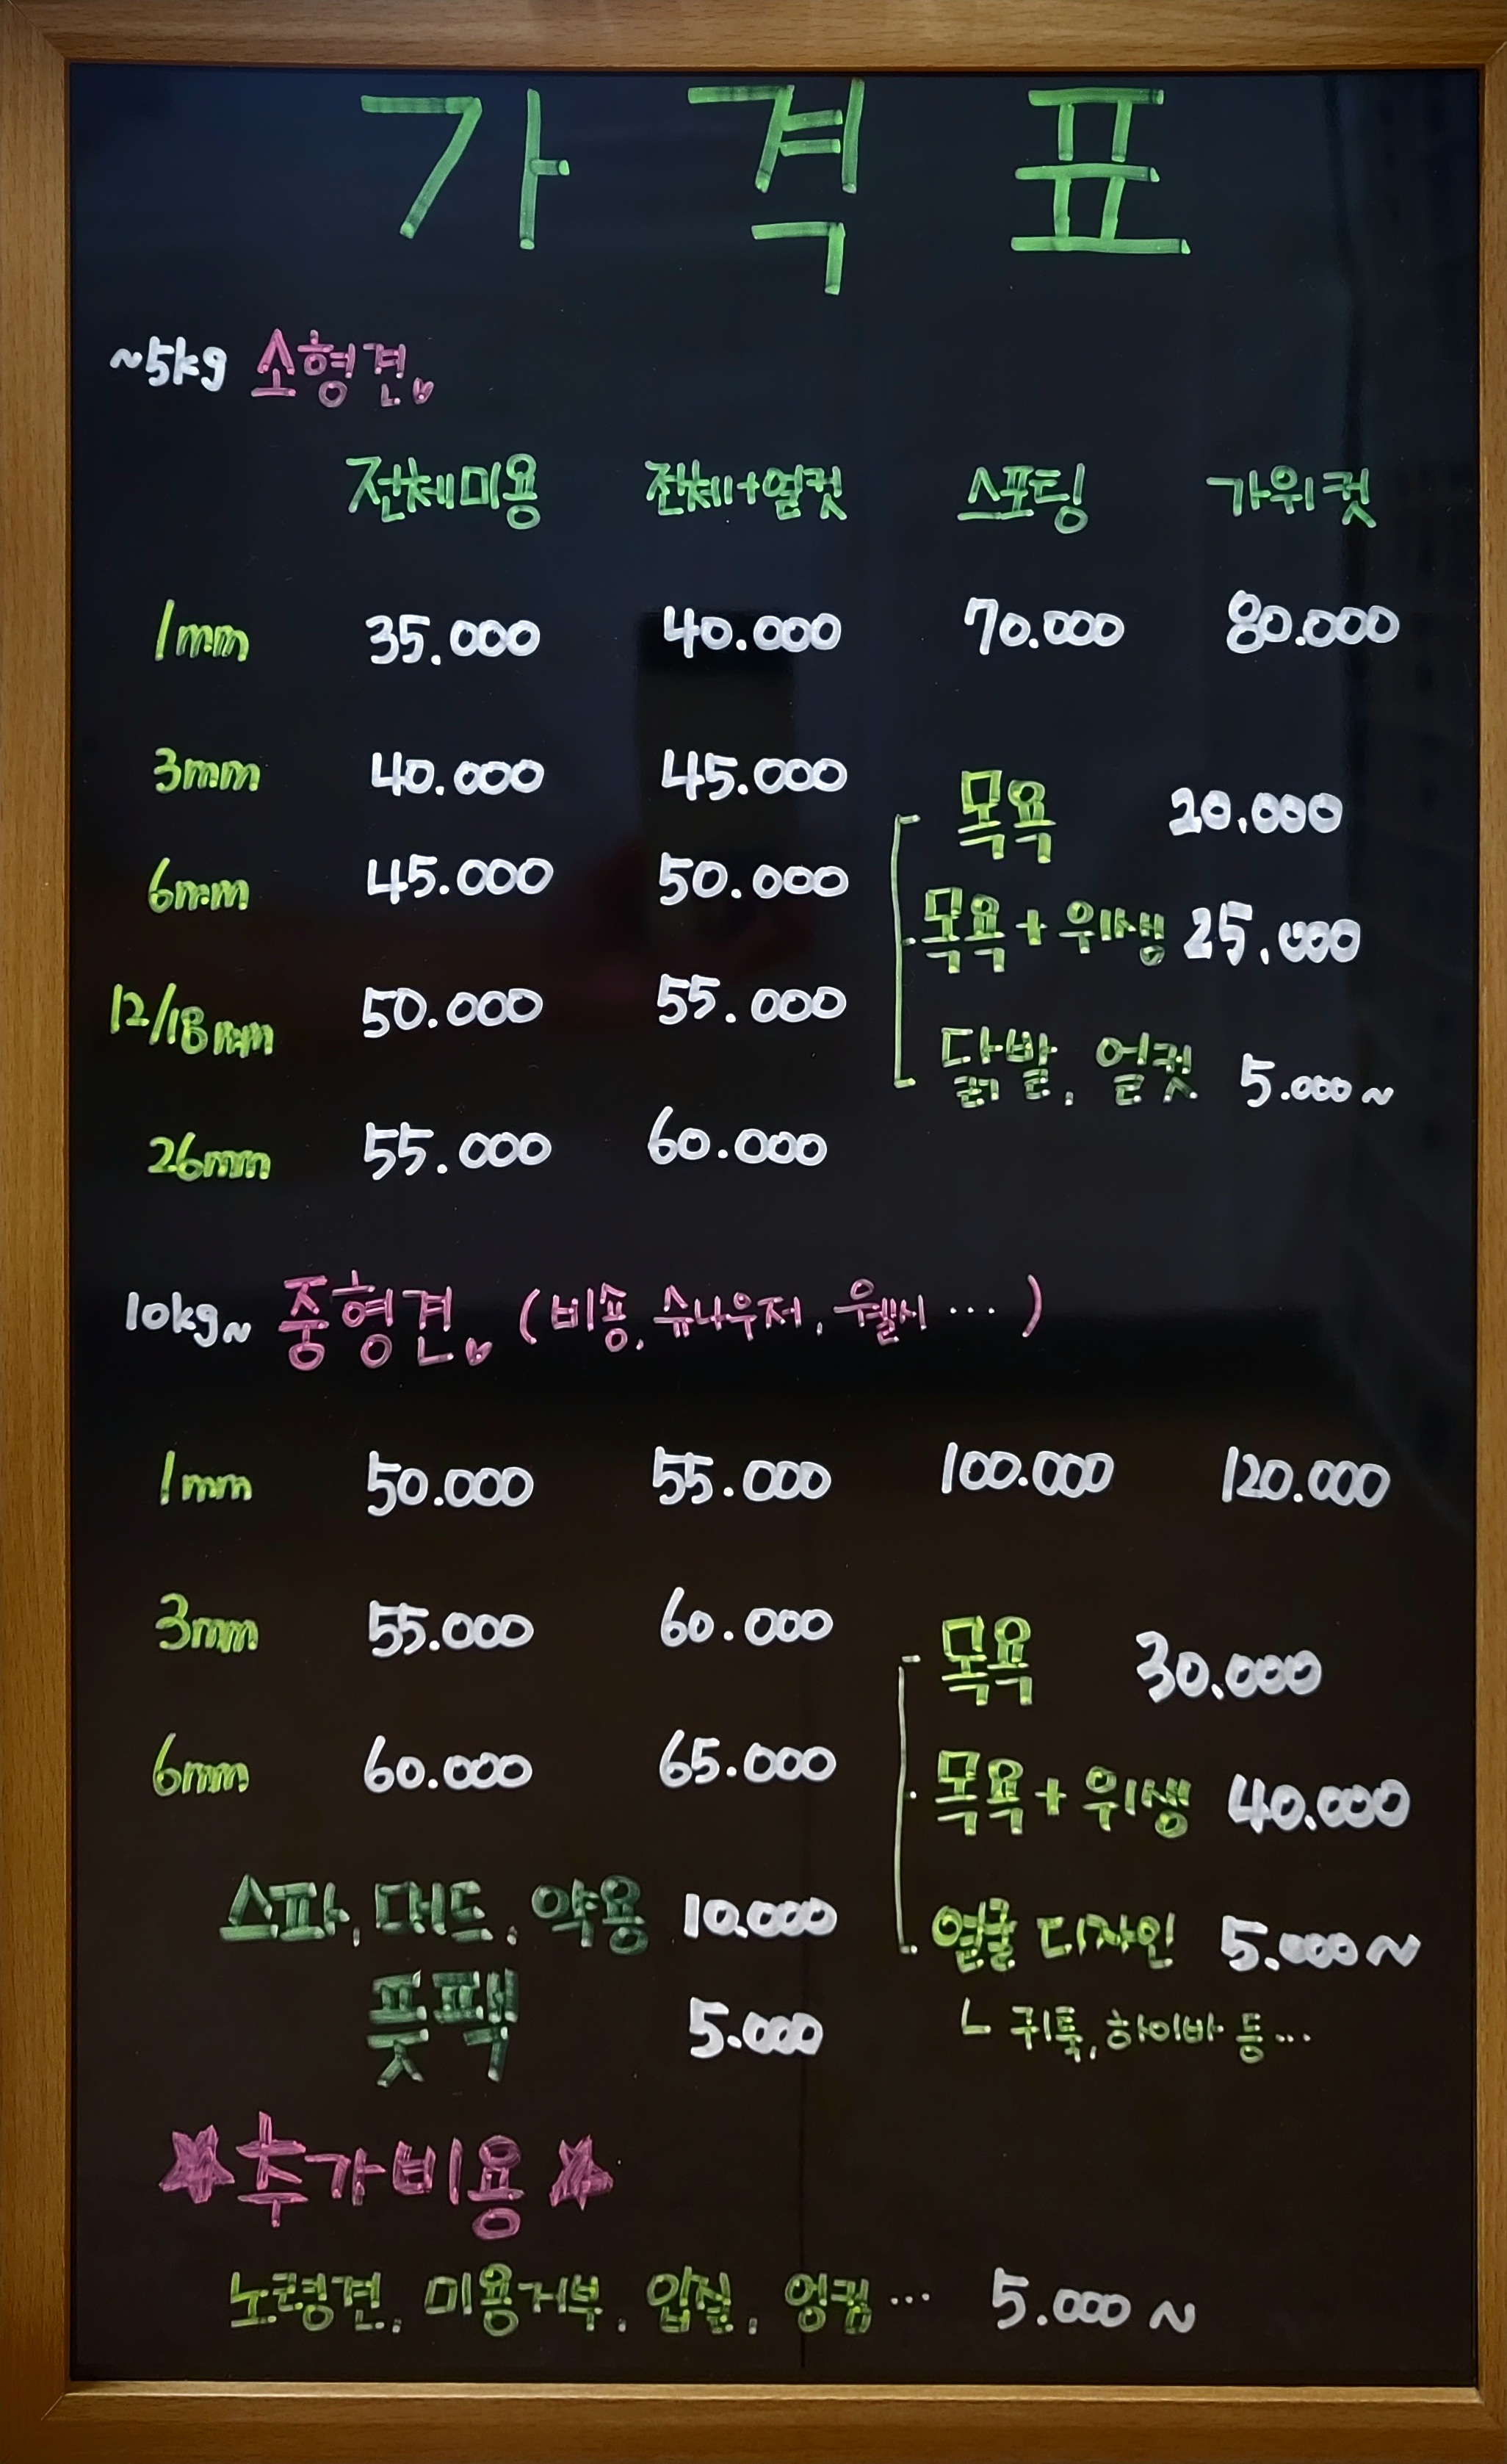 가격표
~5kg 소형견
전체미용 전체+얼컷 스포팅 가위컷
1mm 35.000 40.000 70.000 80.000
3mm 40.000 45.000
목욕 20.000
6mm 45.000 50.000
목욕+위생 25.000
12/18mm 50.000 55.000
닭발, 얼컷 5.000~
26mm 55.000 60.000
10kg~ 중형견 (비숑, 슈나우저, 웰시 ···)
1mm 50.000 55.000 100.000 120.000
3mm 55.000 60.000
목욕 30.000
6mm 60.000 65.000
목욕+위생 40.000
스파, 머드, 약용 10.000
얼굴 디자인 5.000~
풋팩 5.000
ㄴ 귀툭, 하이바 등···
추가비용
노령견, 미용거부, 입질, 엉킴··· 5.000~